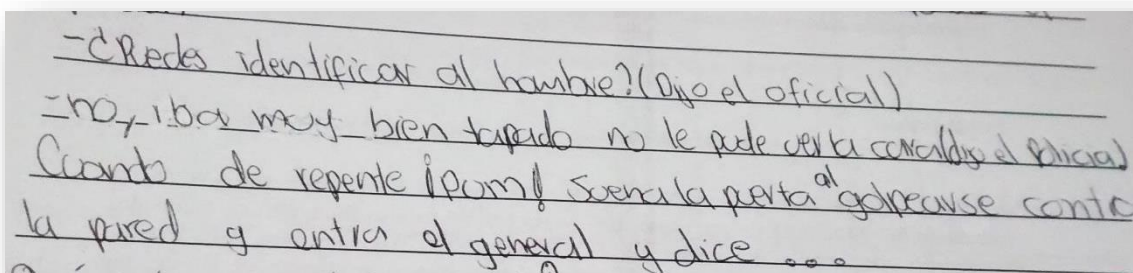 -¿Redes identificar al hombre? (Dijo el oficial)
-no, iba muy bien tapado no le pude ver la cara (dijo el policia)
Cuando de repente ¡pom! Suena la puerta al golpearse contra
la pared y entra el general y dice ...